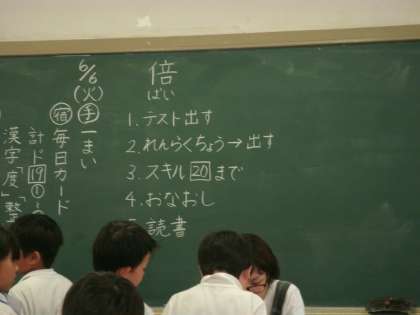 倍
ばい
1. テスト出す
2. れんらくちょう→出す
3. スキル20まで
4. おなおし
読書
6/6
(火)
手 一まい
宿 毎日カード
計ド19①
漢字「度」「整